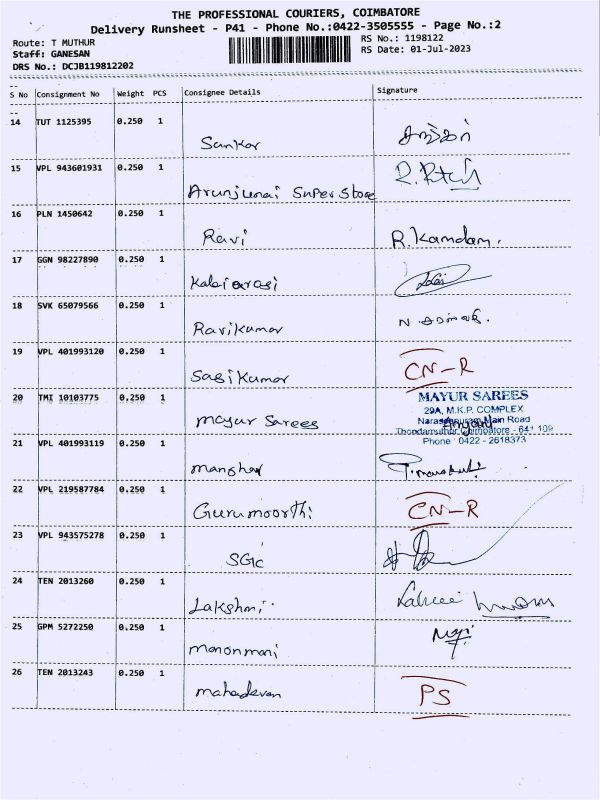 THE PROFESSIONAL COURIERS, COIMBATORE
Delivery Runsheet - P41 - Phone No.:0422-3505555 - Page No.:2
Route: T MUTHUR
RS No.: 1198122
Staff: GANESAN
RS Date: 01-Jul-2023
DRS No.: DCJB119812202
--
S No Consignment No Weight PCS Consignee Details Signature
--
14 TUT 1125395 0.250 1
Sankar
15 VPL 943601931 0.250 1
Arunjunai Super Store
16 PLN 1450642 0.250 1
Ravi R. Kamdam.
17 GGN 98227890 0.250 1
Kalaiarasi
18 SVK 65079566 0.250 1
Ravikumar
19 VPL 401993120 0.250 1
Sasikumar CN-R
20 TMI 10103775 0.250 1 MAYUR SAREES
29A, M.K.P. COMPLEX
mayur Sarees Narasipuram Main Road
Thondamuthur, Coimbatore - 641 109
Phone : 0422 - 2618373
21 VPL 401993119 0.250 1
22 VPL 219587784 0.250 1
Gurumoorthi CN-R
23 VPL 943575278 0.250 1
SGIC
24 TEN 2013260 0.250 1
Lakshmi
25 GPM 5272250 0.250 1
manonmani
26 TEN 2013243 0.250 1
mahadevan PS